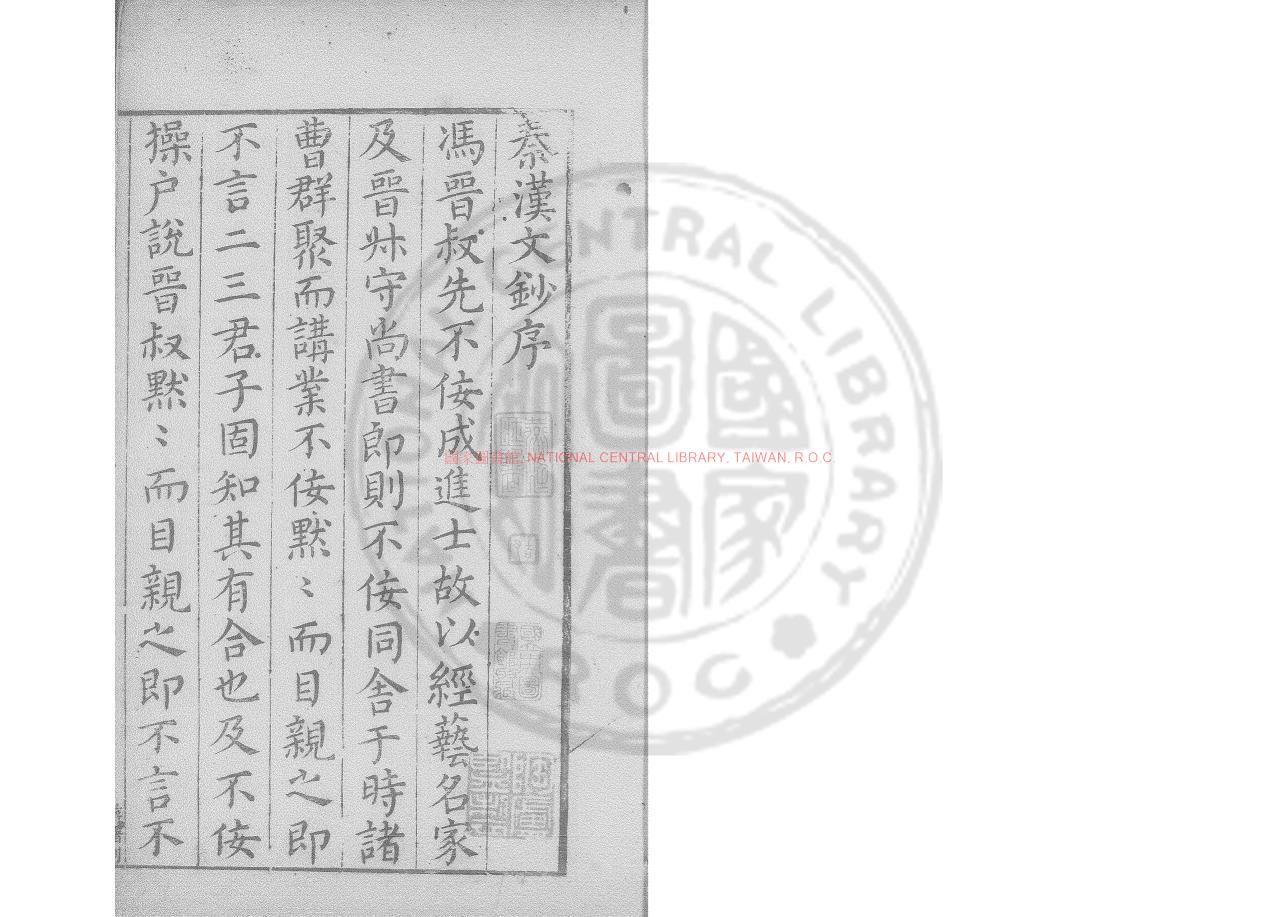 秦漢文鈔序
馮晉叔先不佞成進士故以經藝名家
及晉尗守尚書郎則不佞同舍于時諸
曹群聚而講業不佞默〻而目親之即
不言二三君子固知其有合也及不佞
操戶說晉叔默〻而目親之即不言不
國家圖書館, NATIONAL CENTRAL LIBRARY, TAIWAN, R.O.C.
NATIONAL CENTRAL LIBRARY
R O C
國家圖書